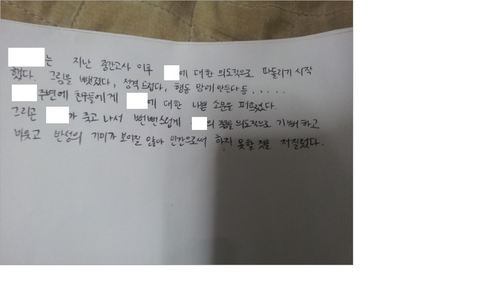 는 지난 중간고사 이후 에 대한 의도적으로 따돌리기 시작
했다. 그림을 뺏겼다, 성격 드럽다, 행동 맘에 안든다 등, . . . . .
주변에 친구들에게 에 대한 나쁜 소문을 퍼트렸다.
그리곤 가 죽고 나서 뻔뻔스럽게 의 의도적으로 기뻐하고
비웃고 반성의 기미가 보이질 않아 인간으로써 하지 못할 짓을 저질렀다.